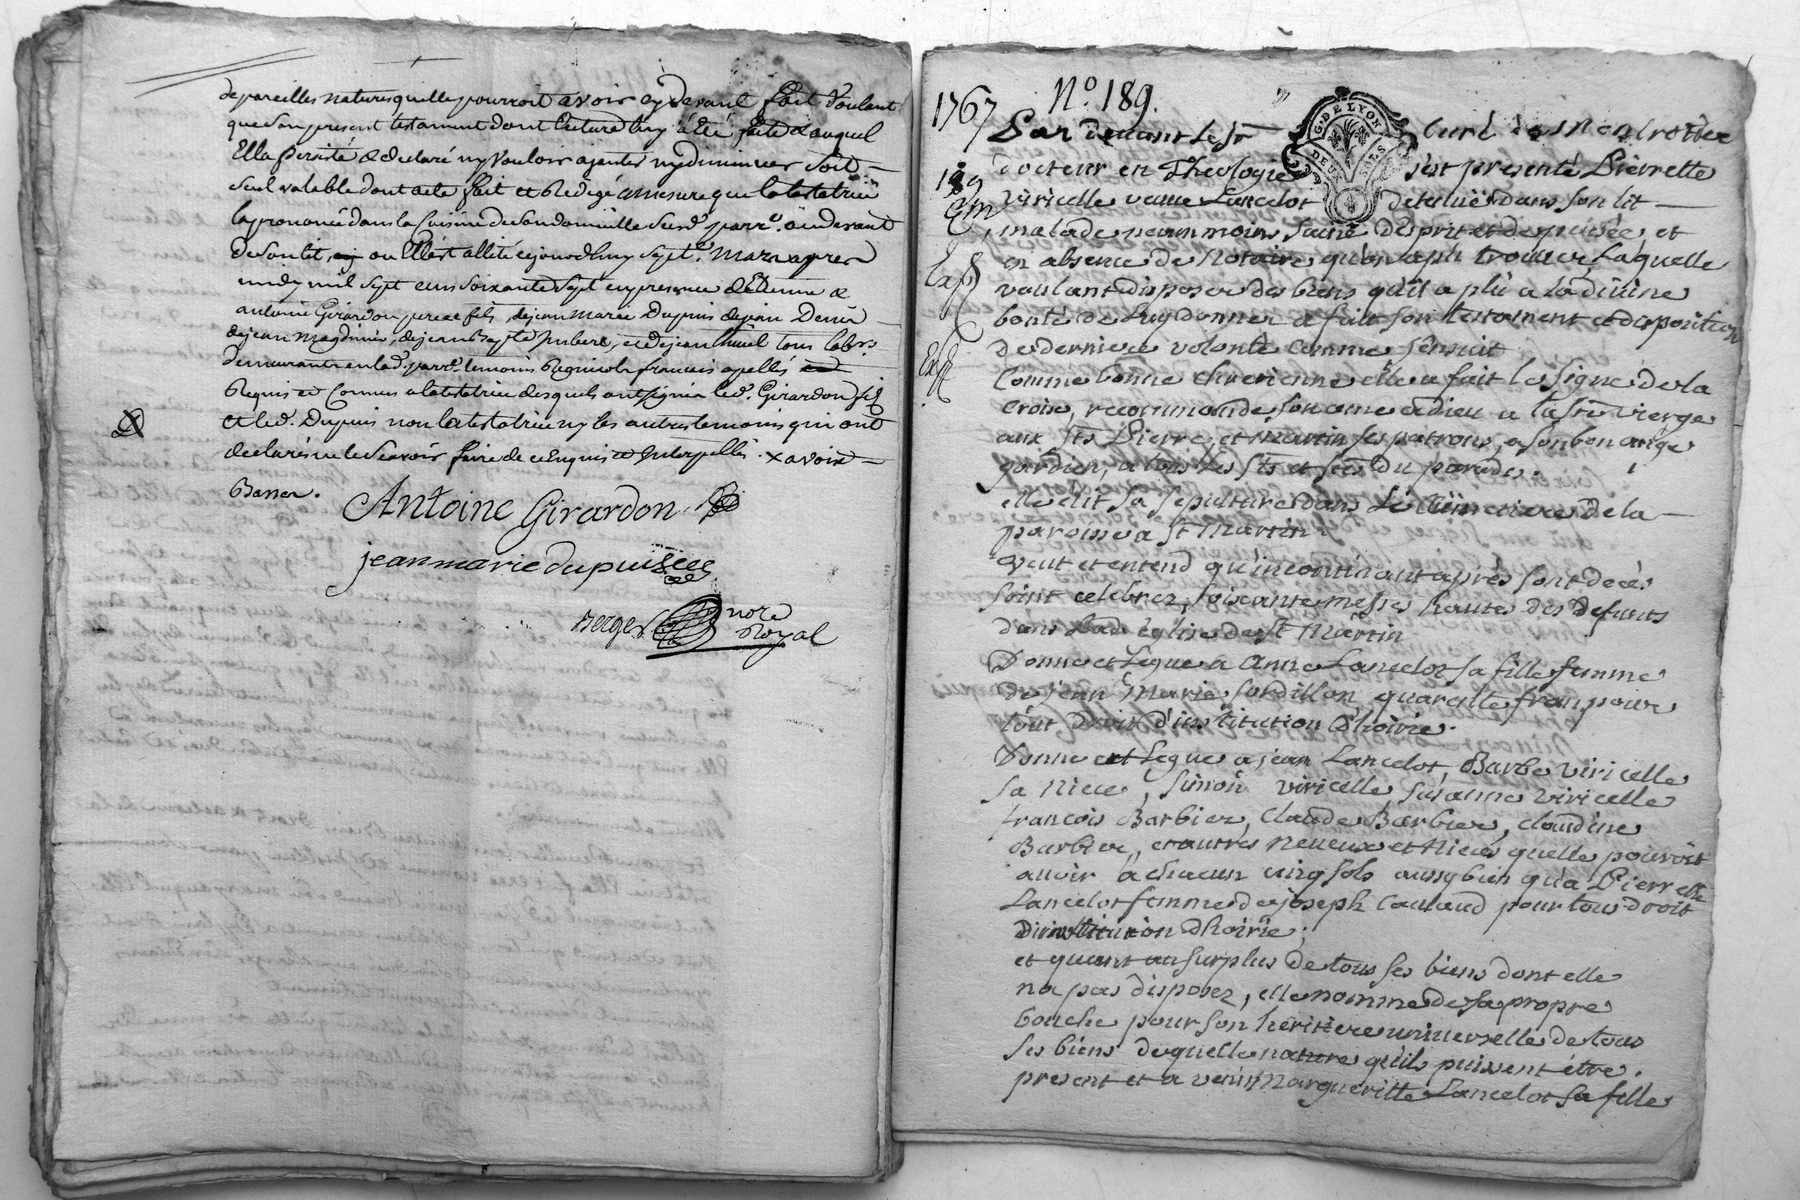 de pareilles natures quelle pourroit avoir cy devant fait voulant
que son present testament dont lecture luy a été faite & auquel
Ella persisté & declaré ny vouloir ajenter ny diminuer soit
seul valable dont acte fait et Redigé a mesure que la testatrice
la prononcé dans la Cuisine de son domicille susd. parr.e au devant
de son lit, ou Elle est allitée cejourdhuy sept.e Mars apres
midy mil sept cens soixante sept en presence d'Etienne &
antoine Girardon pere et fils, de jean Marie Dupuis de jean
de jean de jean Bap.te et de jean tous
demeurants en lad. parr.e temoins Regnicoles francais apellés
Requis et Connus a la testatrice desquels ont signé led. Girardon fils
et led. Dupuis non la testatrice ny les autres temoins qui ont
declarés ne le scavoir faire de ce Enquis et Interpellés . x avoir
Antoine Girardon
jean marie dupuis
Berger
no.re
Royal
1767 No. 189.
G. DE LYON
DEUX SOLS
Par devant le Sr Curé de Montrottier
docteur en Theologie s'est presenté Pierrette
viricelle veuve Lancelot detenüe dans son lit
malade neanmoins saine d'esprit et de pensée, et
en absence de Notaire qu'on a pû trouver, Laquelle
voulant disposer des biens qu'il a plû a la divine
bonté de luy donner a fait son testament et disposition
de derniere volonté comme s'ensuit
Comme bonne chretienne elle a fait le signe de la
croix, recommandé son ame a dieu a la Ste vierge
aux Sts Pierre, et Martin ses patrons, a son bon ange
gardien, a tous les Sts et Stes du paradis.
elle elit sa sepulture dans Le Cimetiere de la
paroisse St Martin
veut et entend qu'incontinant après sont decès
soint celebrez, soixante messes hautes des defunts
dans Lad. église de St Martin
Donne et Legue a Anne Lancelot sa fille femme
de jean Marie Sordillon quarante fran pour
tout droit d'institution d'hoirie.
Donne et Legue a jean Lancelot, Barbe viricelle
sa Niece, Simon viricelle, Susanne viricelle
francois Barbier, Claude Barbier, claudine
Barbier, et autres Neveux et Nieces quelle pourroit
avoir a chacun cinq sols aussy bien qu'a Pierrette
Lancelot femme de joseph Cataud pour tous droit
d'institution d'hoirie;
et quant au surplus de tous ses biens dont elle
na pas disposez, elle nomme de sa propre
bouche pour son héritiere universelle de tous
ses biens de quelle nature qu'ils puissent être.
present et a venir Margueritte Lancelot sa fille